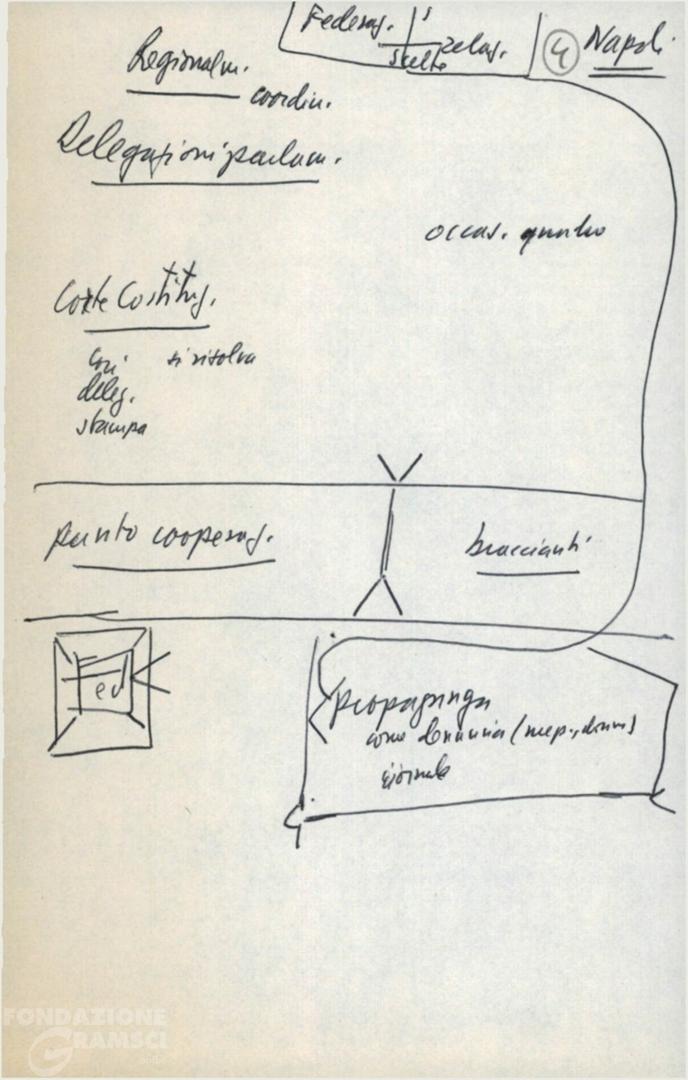 Federaz.
scelte relaz.
4 Napoli
Regionalm.
coordin.
Delegazioni parlam.
occas.
Corte Costituz.
così si risolva
deleg.
stampa
punto cooperaz.
braccianti
ed
propaganda
come denuncia
giornale
FONDAZIONE
GRAMSCI